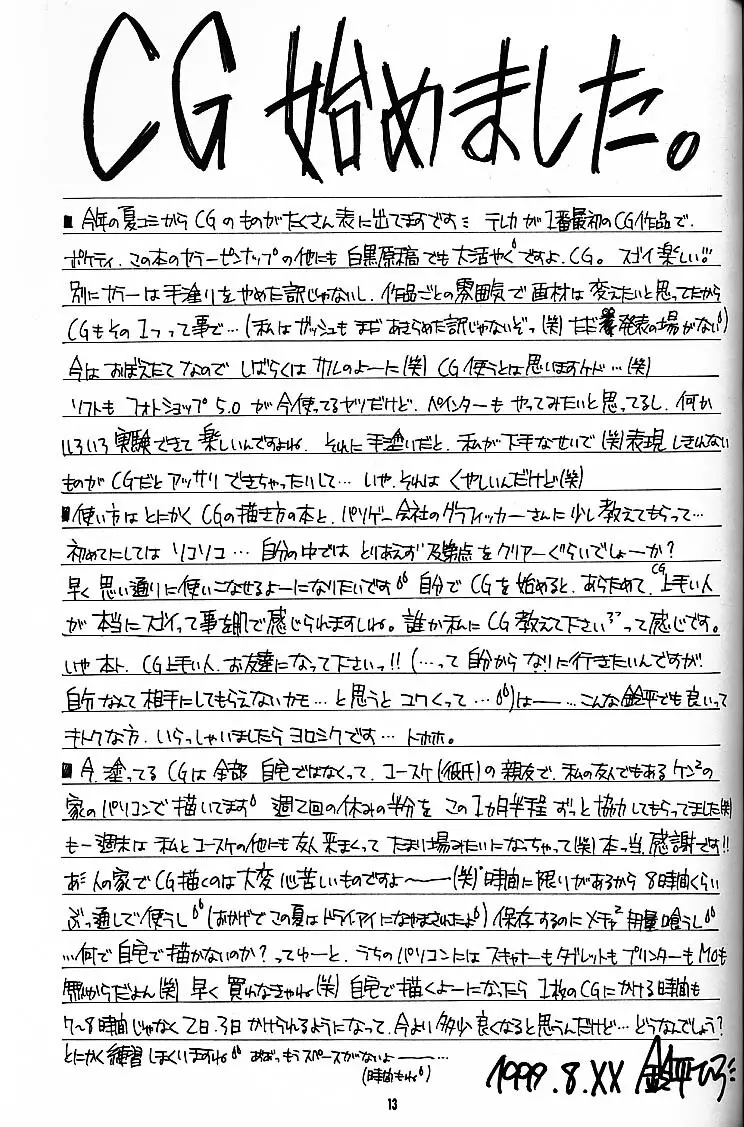 CG 始めました。
■今年の夏コミからCGのものがたくさん表に出てますです ミ テレカが1番最初のCG作品で、
ポケティ、この本のカラーピンナップの他にも白黒原稿でも大活やくですよ、CG。スゴイ楽しい!!
別にカラーは手塗りをやめた訳じゃないし、作品ごとの雰囲気で画材は変えたいと思ってたから
CGもその1つって事で…(私はガッシュもまだあきらめた訳じゃないぞっ(笑)ただ発表の場がない)
今はおぼえたてなのでしばらくはサルのよーに(笑)CG使うとは思いますケド…(笑)
ソフトもフォトショップ5.0が今使ってるヤツだけど、ペインターもやってみたいと思ってるし、何か
いろいろ実験できて楽しいんですよね。それに手塗りだと、私が下手なせいで(笑)表現しきれない
ものがCGだとアッサリできちゃったりして…いや、それはくやしいんだけど(笑)
■使い方はとにかくCGの描き方の本と、パソゲー会社のグラフィッカーさんに少し教えてもらって…
初めてにしてはソコソコ…自分の中ではとりあえず及第点をクリアーぐらいでしょーか?
早く思い通りに使いこなせるよーになりたいです 自分でCGを始めると、あらためて、CG上手い人
が本当にスゴイって事を肌で感じられますしね。誰か私にCG教えて下さいって感じです。
いや本ト、CG上手い人、お友達になって下さいっ!!(…って自分からなりに行きたいんですが、
自分なんて相手にしてもらえないカモ…と思うとコワくって…)は——…こんな鈴平でも良いって
キトクな方、いらっしゃいましたらヨロシクです…トホホ。
■今、塗ってるCGは全部自宅ではなくって、コースケ(彼氏)の親友で、私の友人でもあるケンケンの
家のパソコンで描いてます 週2回の休みの半分をこの1カ月半程ずっと協力してもらってました(笑)
もー週末は私とコースケの他にも友人来まくってたまり場みたいになっちゃって(笑)本っ当、感謝です!!
あと人の家でCG描くのは大変心苦しいものですよ———(笑)時間に限りがあるから8時間くらい
ぶっ通しで使うし(おかげでこの夏はドライアイになやまされたよ)保存するのにメチャメチャ用量喰うし
…何で自宅で描かないのか?ってゆーと、うちのパソコンにはスキャナーもタブレットもプリンターもMOも
無いからだよん(笑)早く買わなきゃね(笑)自宅で描くよーになったら1枚のCGにかける時間も
7〜8時間じゃなく2日、3日かけられるようになって、今より多少良くなると思うんだけど…どうなんでしょう?
とにかく練習しまくいますね ああっもうスペースがないよ———…
(時間もね)
1999.8.XX 鈴平ひろ
13